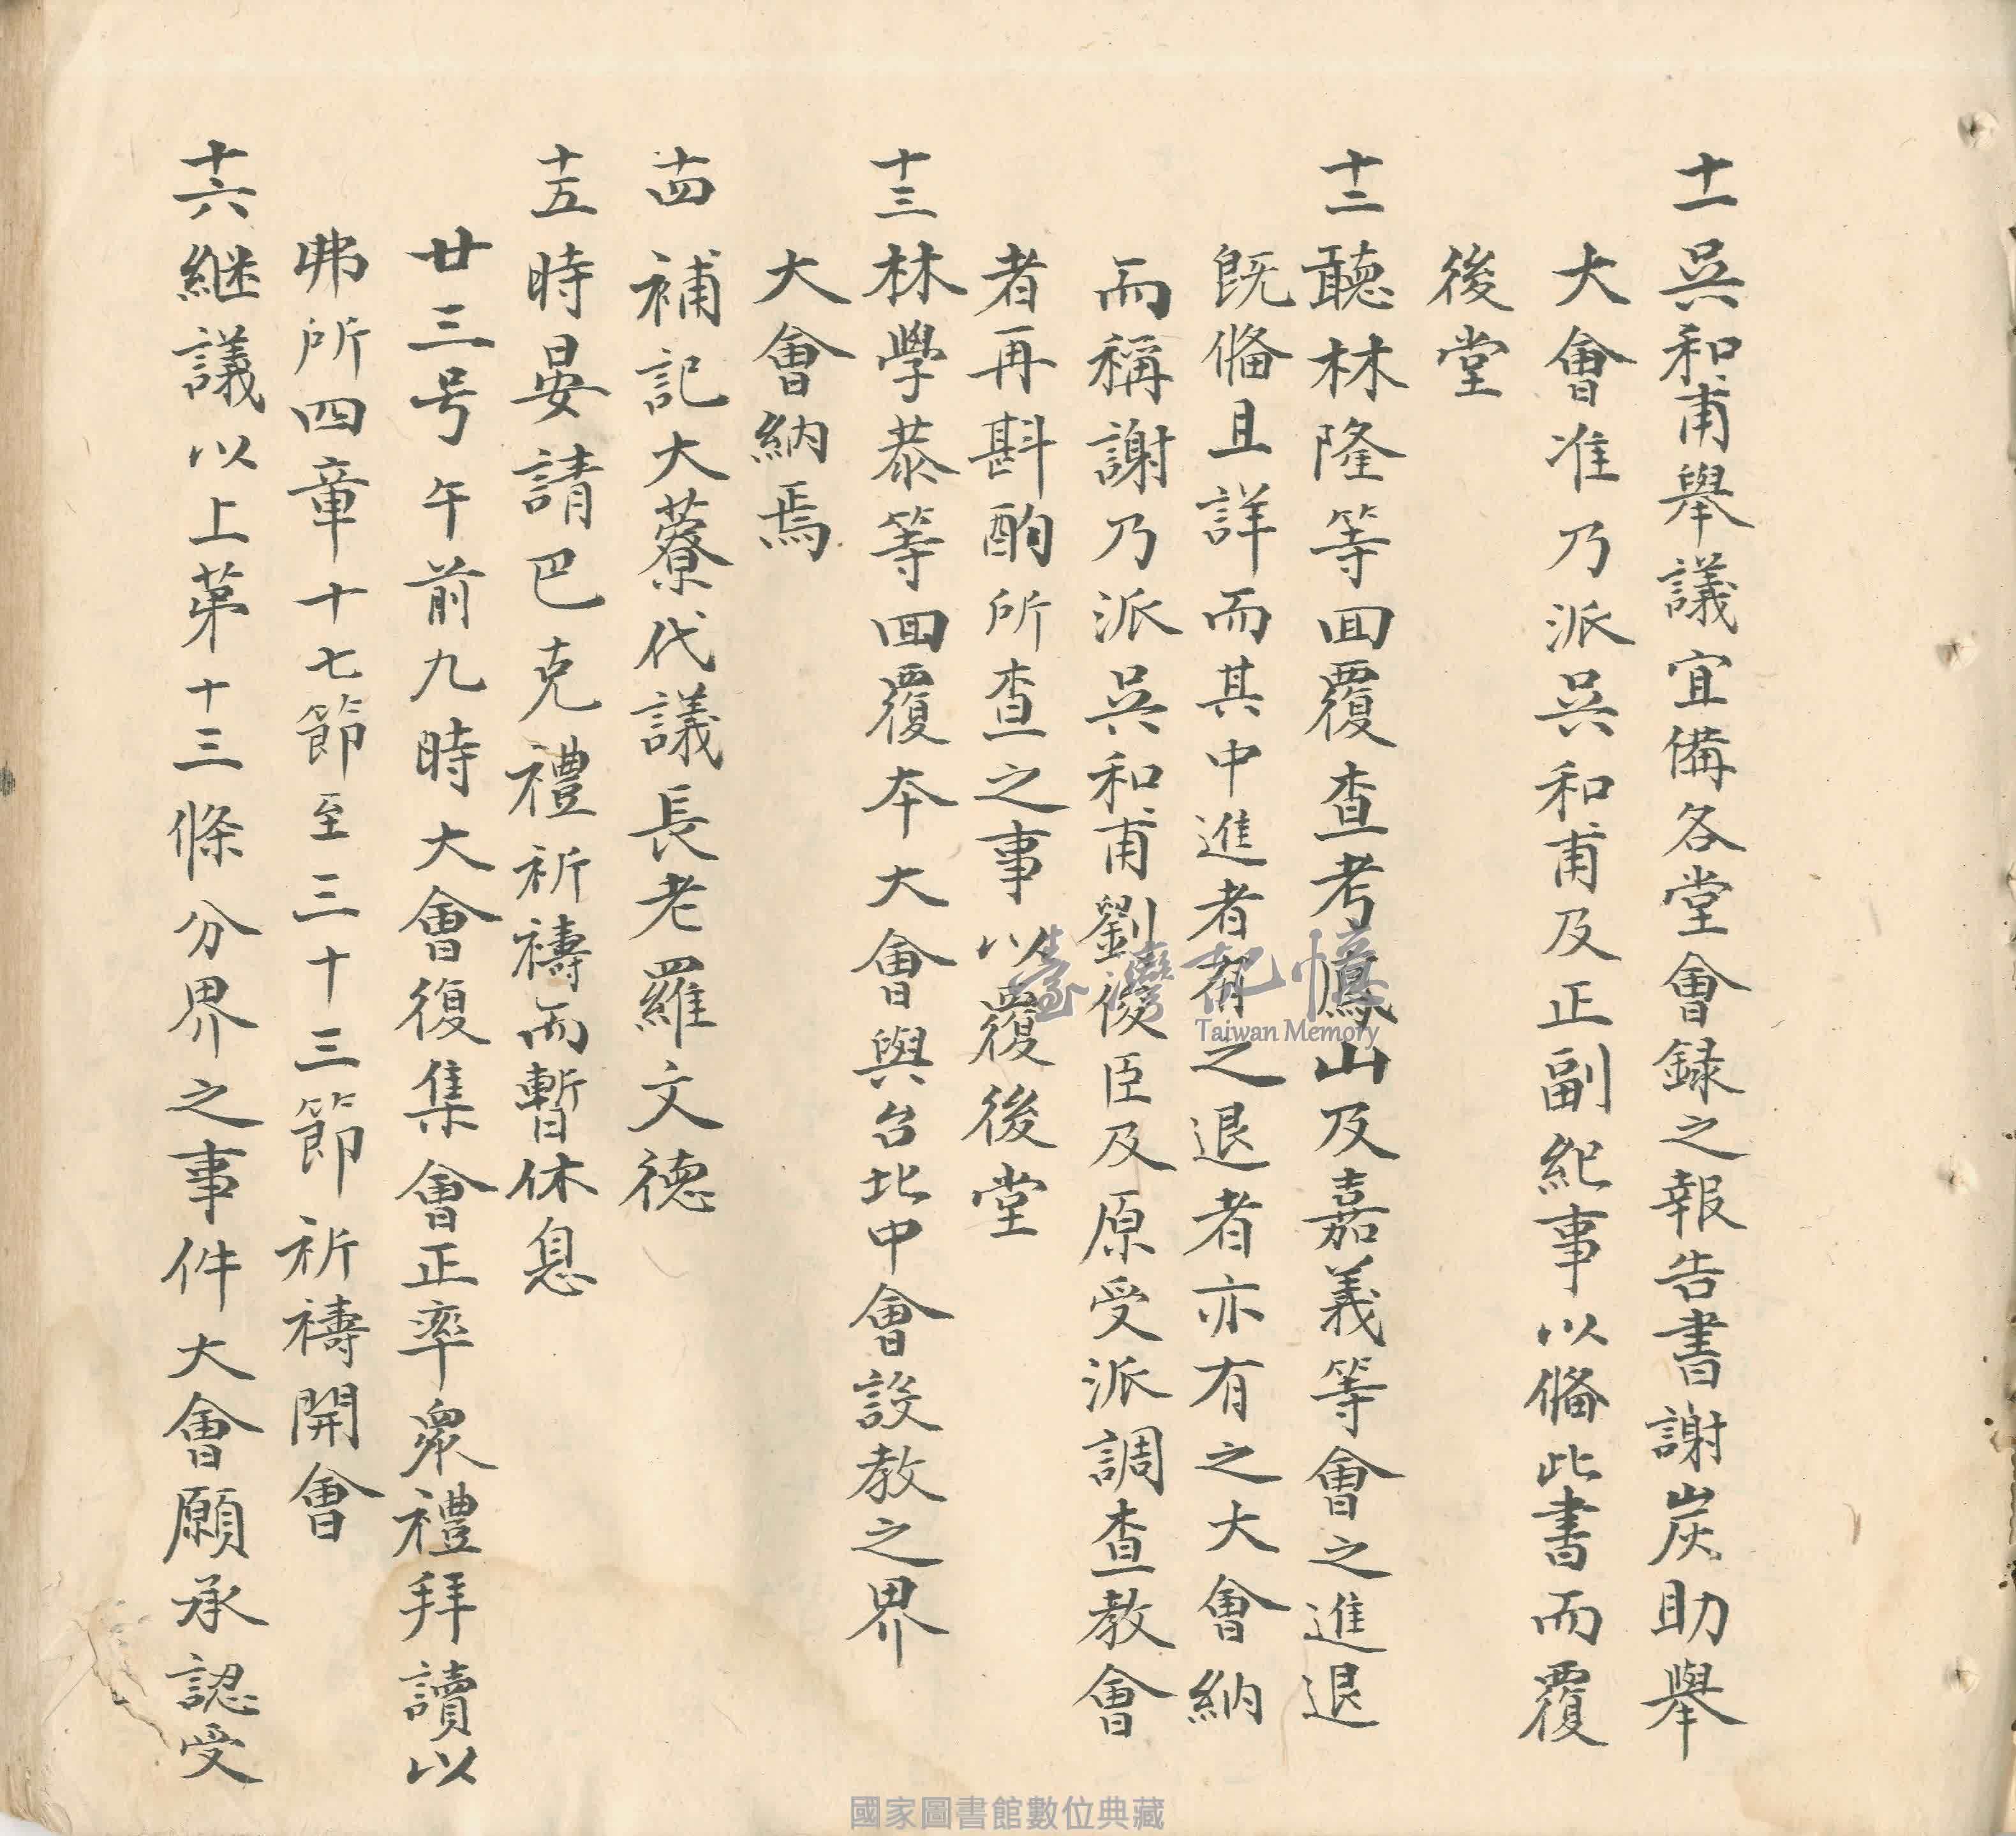 十一吳和甫舉議宜備各堂會録之報告書謝炭助舉
大會准乃派吳和甫及正副紀事以俻此書而覆
後堂
十二聽林隆等囬覆查考鳳山及嘉義等會之進退
既俻且詳而其中進者有之退者亦有之大會納
而稱謝乃派吳和甫劉俊臣及原受派調查教會
者再斟酌所查之事以覆後堂
十三林學恭等囬覆本大會與台北中會設教之界
大會納焉
十四補記大藔代議長老羅文德
十五時晏請巴克禮祈禱而暫休息
廿三号午前九時大會復集會正率衆禮拜讀以
弗所四章十七節至三十三節祈禱開會
十六継議以上苐十三條分界之事件大會願承認受
臺灣記憶
Taiwan Memory
國家圖書館數位典藏